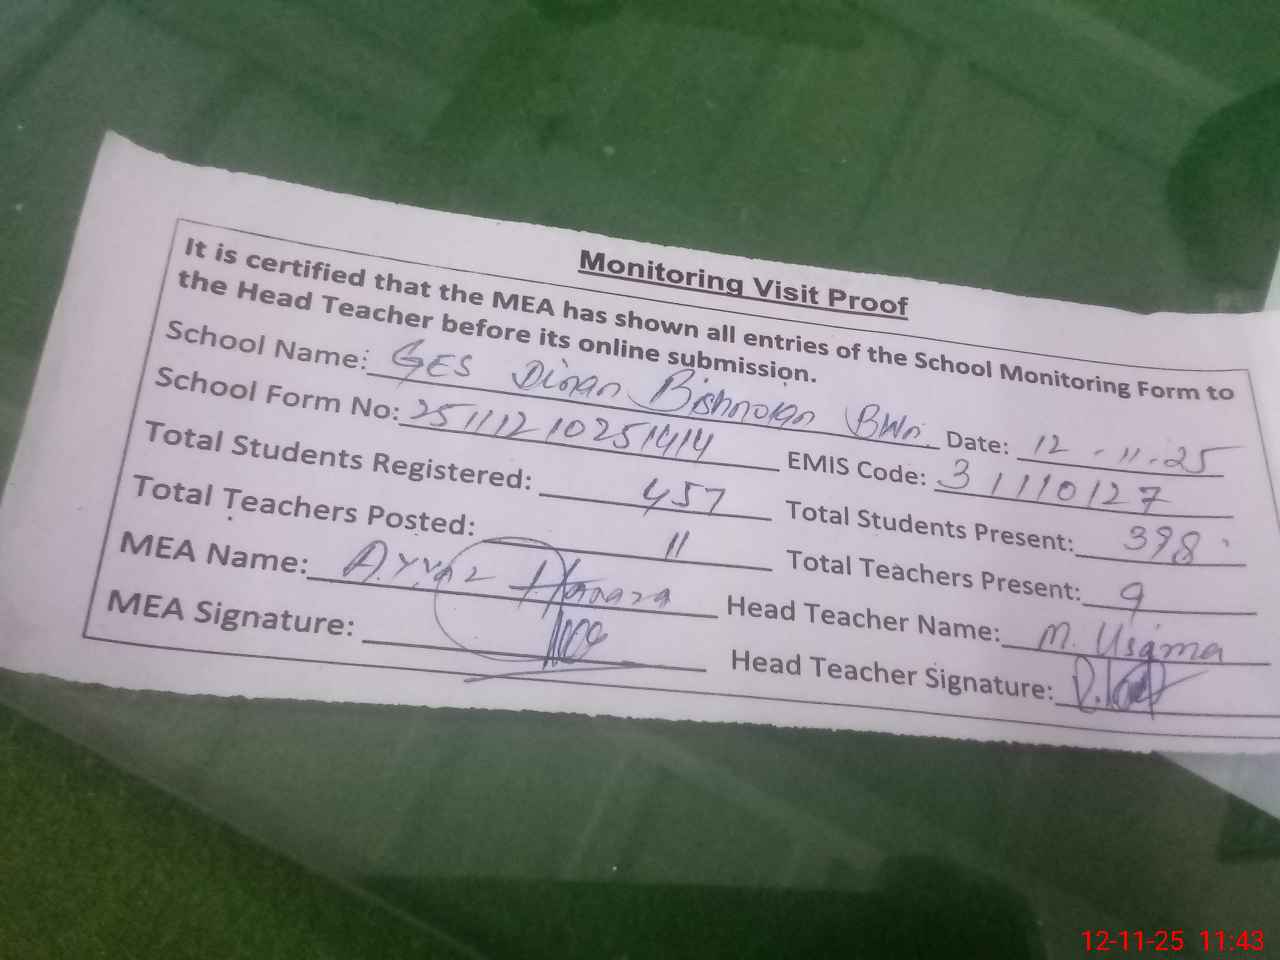 Monitoring Visit Proof
It is certified that the MEA has shown all entries of the School Monitoring Form to
the Head Teacher before its online submission.
School Name: GES Dinan Bishnoian BWN Date: 12.11.25
School Form No: 25111210251414 EMIS Code: 31110127
Total Students Registered: 457 Total Students Present: 398
Total Teachers Posted: 11 Total Teachers Present: 9
MEA Name: Head Teacher Name: M. Usama
MEA Signature: Head Teacher Signature:
12-11-25 11:43